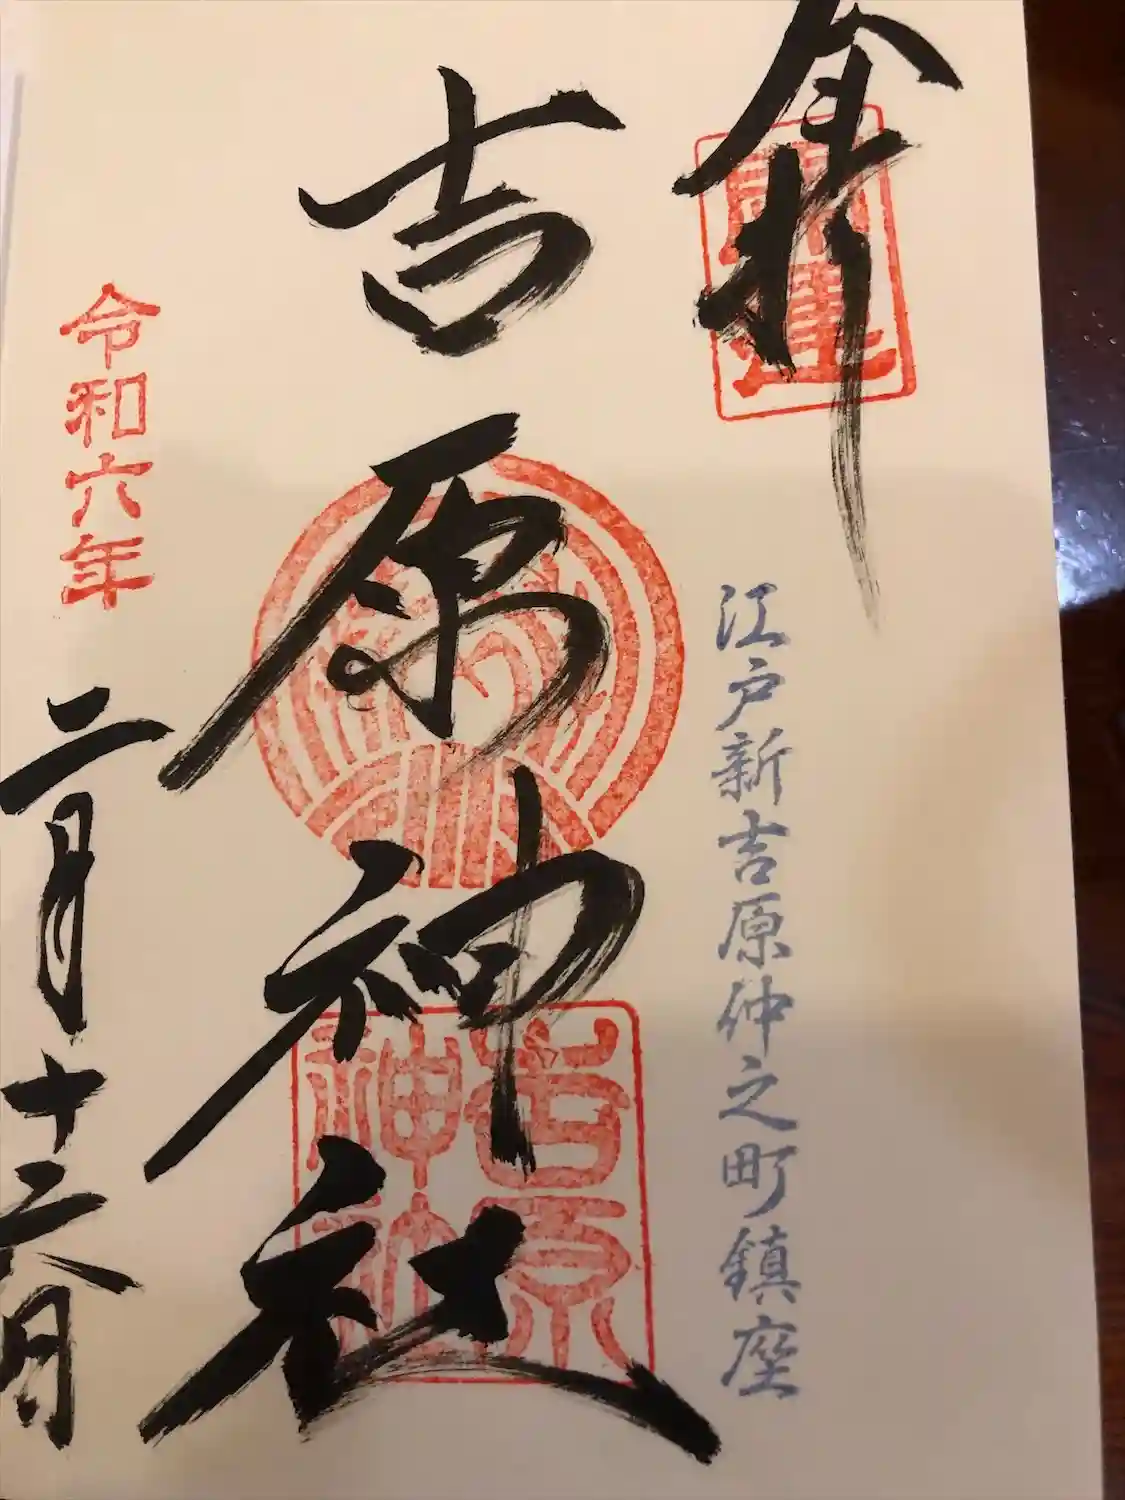 奉拝
開運
江戸新吉原仲之町鎮座
吉原神社
吉原
神社
令和六年
二月十六日